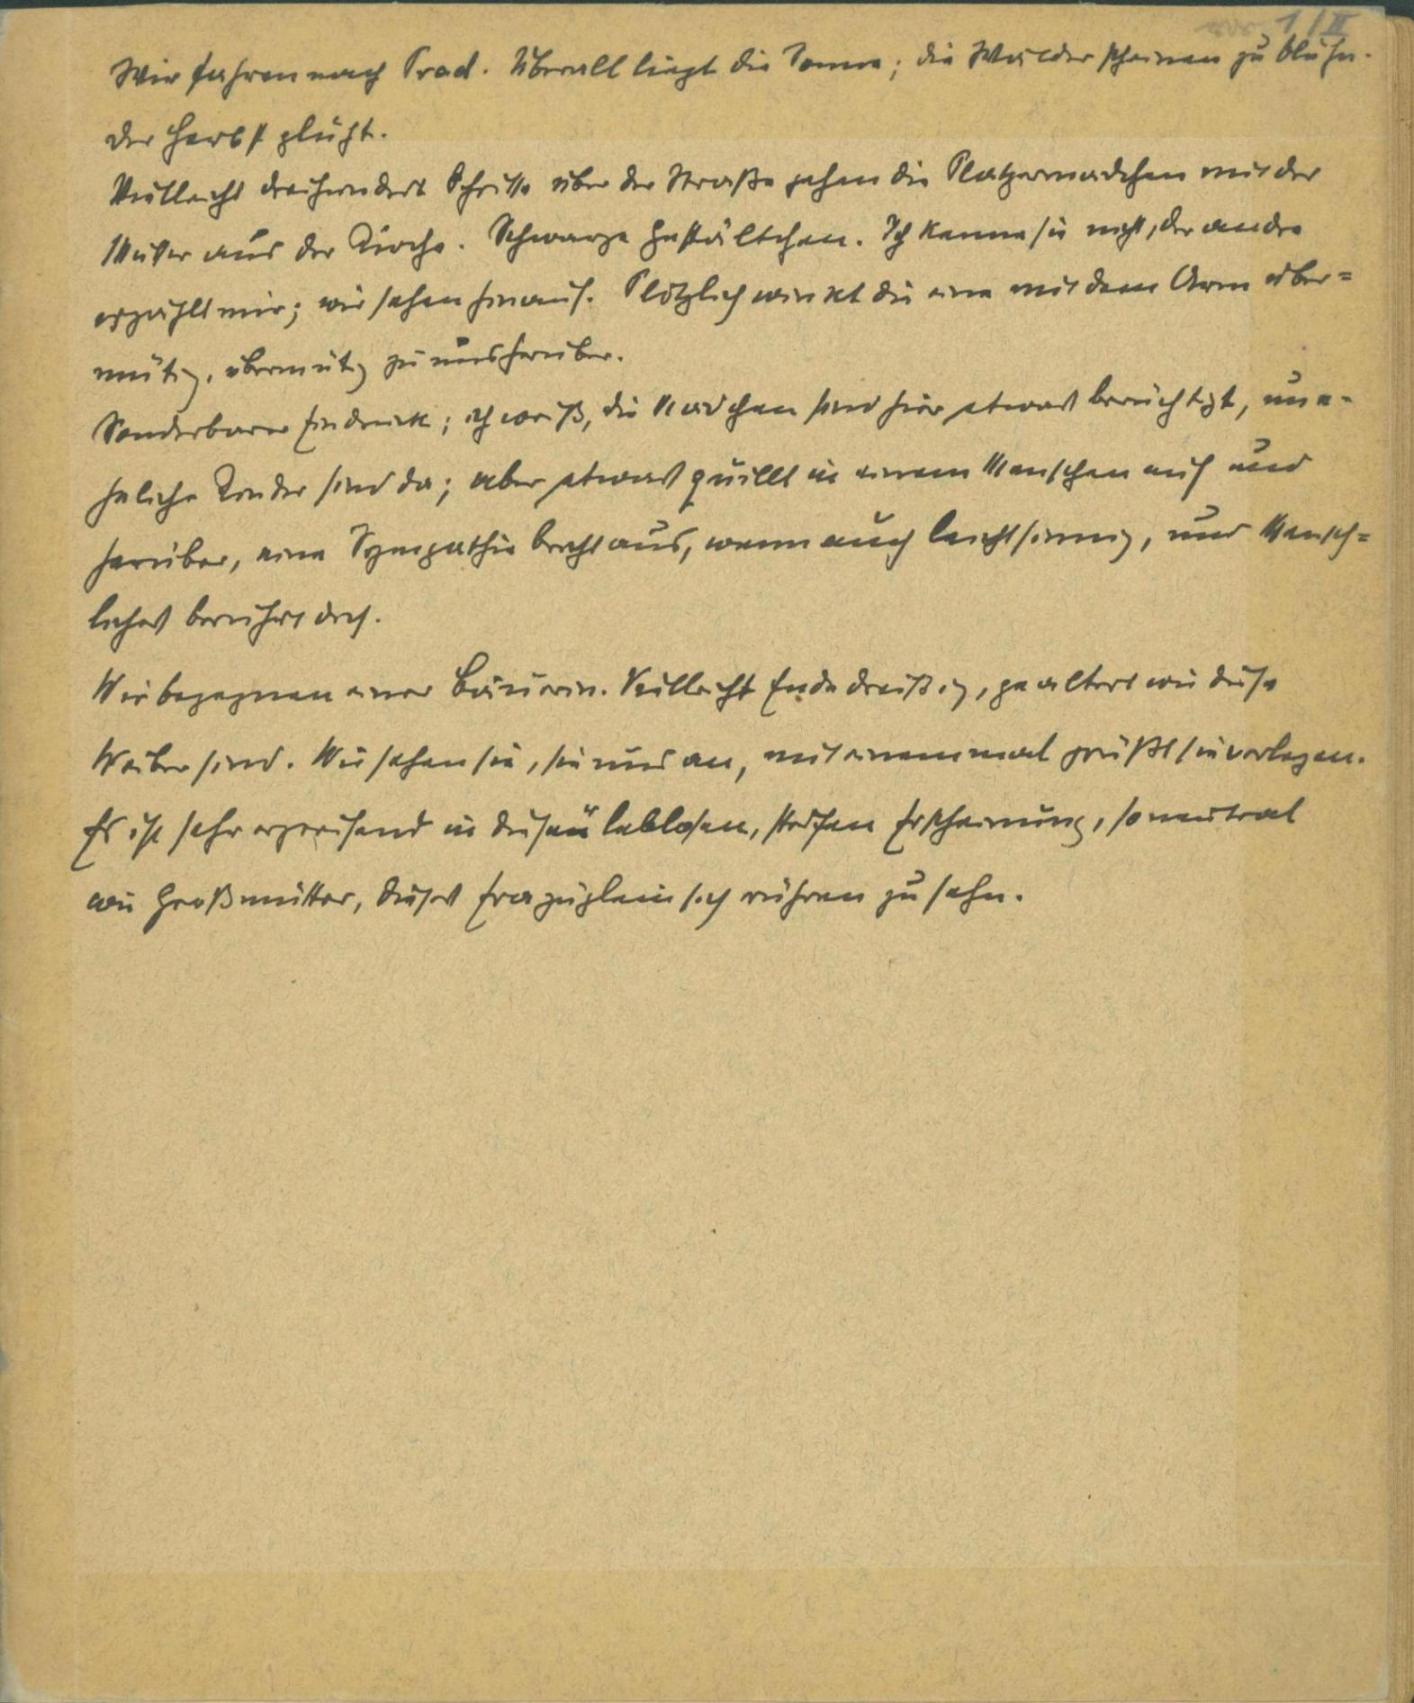 1/II
Wir fahren nach Prad. Überall liegt die Sonne; die Wälder scheinen zu blühn.
Der Herbst glüht.
Vielleicht dreihundert Schritte über der Straße gehen die Platzermädchen mit der
Mutter aus der Kirche. Schwarze Gestältchen. Ich kenne sie nicht, der andre
erzählt mir; wir sehen hinauf. Plötzlich winkt die eine mit dem Arm über=
mütig, übermütig zu uns herüber.
Sonderbarer Eindruck; ich weiß, die Mädchen sind hier etwas berüchtigt, une-
heliche Kinder sind da; aber etwas quillt in einem Menschen auf und
herüber, eine Sympathie bricht aus, wenn auch leichtsinnig, und Mensch=
liches berührt dich.
Wir begegnen einer Bäuerin. Vielleicht Ende dreißig, gealtert wie diese
Weiber sind. Wir sehen sie, sie uns an, mit einemmal grüßt sie verlegen.
Es ist sehr ergreifend in dieser leblosen, steifen Erscheinung, so neutral
wie Großmütter, dieses sich rühren zu sehn.